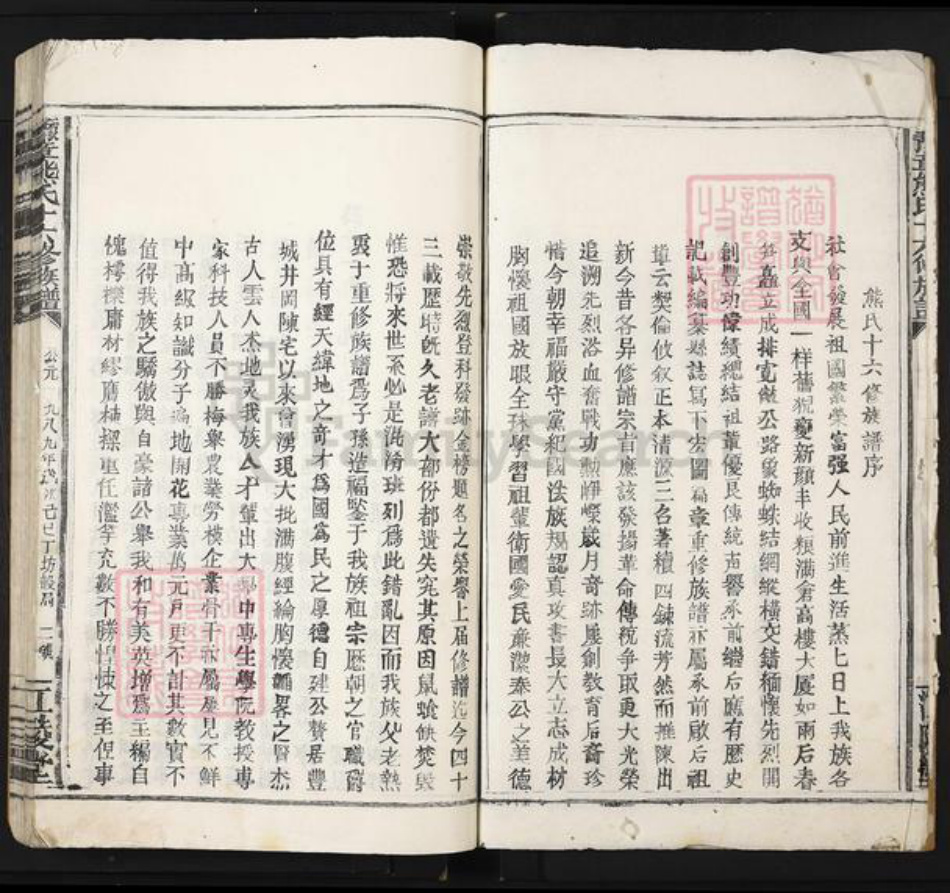 熊氏十六修族譜序
社會發展祖國繁榮富强人民前進生活蒸上日上我族各
支與全國一样舊貌變新顏丰收粮满倉高樓大厦如雨后春
笋矗立成排寬敞公路象蜘蛛結網縱橫交錯緬懷先烈開
創豐功偉績總結祖輩優良傳統声譽承前継后應有歷史
記載編纂縣誌寫下宏圖篇章重修族譜亦屬承前啟后祖
章云契倫攸叙正本清源三名著續四鍊流芳然而推陳出
新今昔各异修譜宗旨應該發揚革命傳統争取更大光榮
追溯先烈浴血奮戰功勳崢嶸歲月奇跡屢創教育后裔珍
惜今朝幸福嚴守黨紀國法族規認真攻書長大立志成材
胸懷祖國放眼全球學習祖輩衛國愛民廉潔奉公之美德
崇敬先烈登科發跡金榜題名之榮譽上届修譜迄今四十
三載歷時旣久老譜大部份都遺失究其原因鼠蝕蚨焚毁
惟恐將來世系必是混淆班列爲此錯亂因而我族父老熱
衷于重修族譜爲子孫造福鑒于我族祖宗歷朝之官職爵
位具有經天緯地之奇才爲國爲民之厚德自建公贅居豐
城井岡陳宅以來曾湧現大批满腹經綸胸懷韜畧之賢杰
古人雲人杰地灵我族人才輩出大 中專生學院教授專
家科技人員不勝梅舉農業勞模企業骨干亦屬屢見不鮮
中高級知識分子遍地開花專業萬元戶更不計其數實不
值得我族之驕傲與自豪諸公舉我和有美英增爲主編自
愧樗櫟庸材繆膺 重任濫竽充數不勝惶悚之至但事
豫章熊氏十六修族譜
公元 九八九年歲次己巳丁坊 局
江陵堂